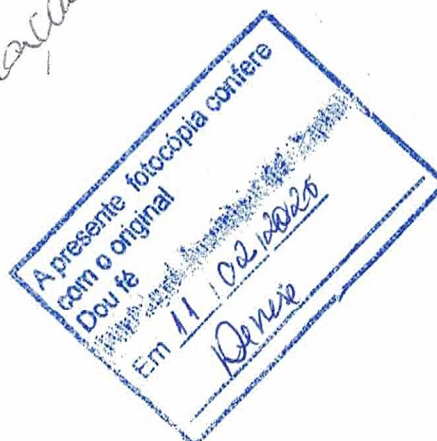 A presente fotocópia confere
com o original
Dou fé
Em 11 / 02 / 2026
Denise